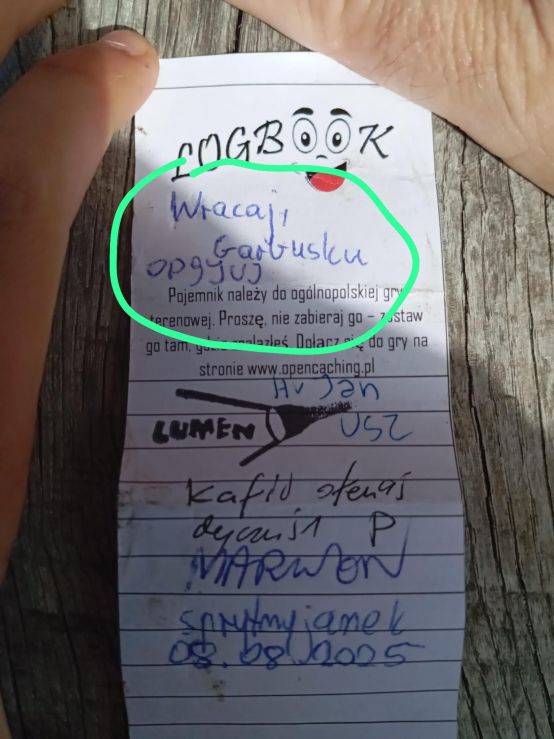 LOGBOOK
Wracaj,
Garbusku
Pojemnik należy do ogólnopolskiej gry
terenowej. Proszę, nie zabieraj go – zostaw
go tam, gdzie znalazłeś. Dołącz się do gry na
stronie www.opencaching.pl
LUMEN
P
MARWON
sprytnyjanek
08.08.2005